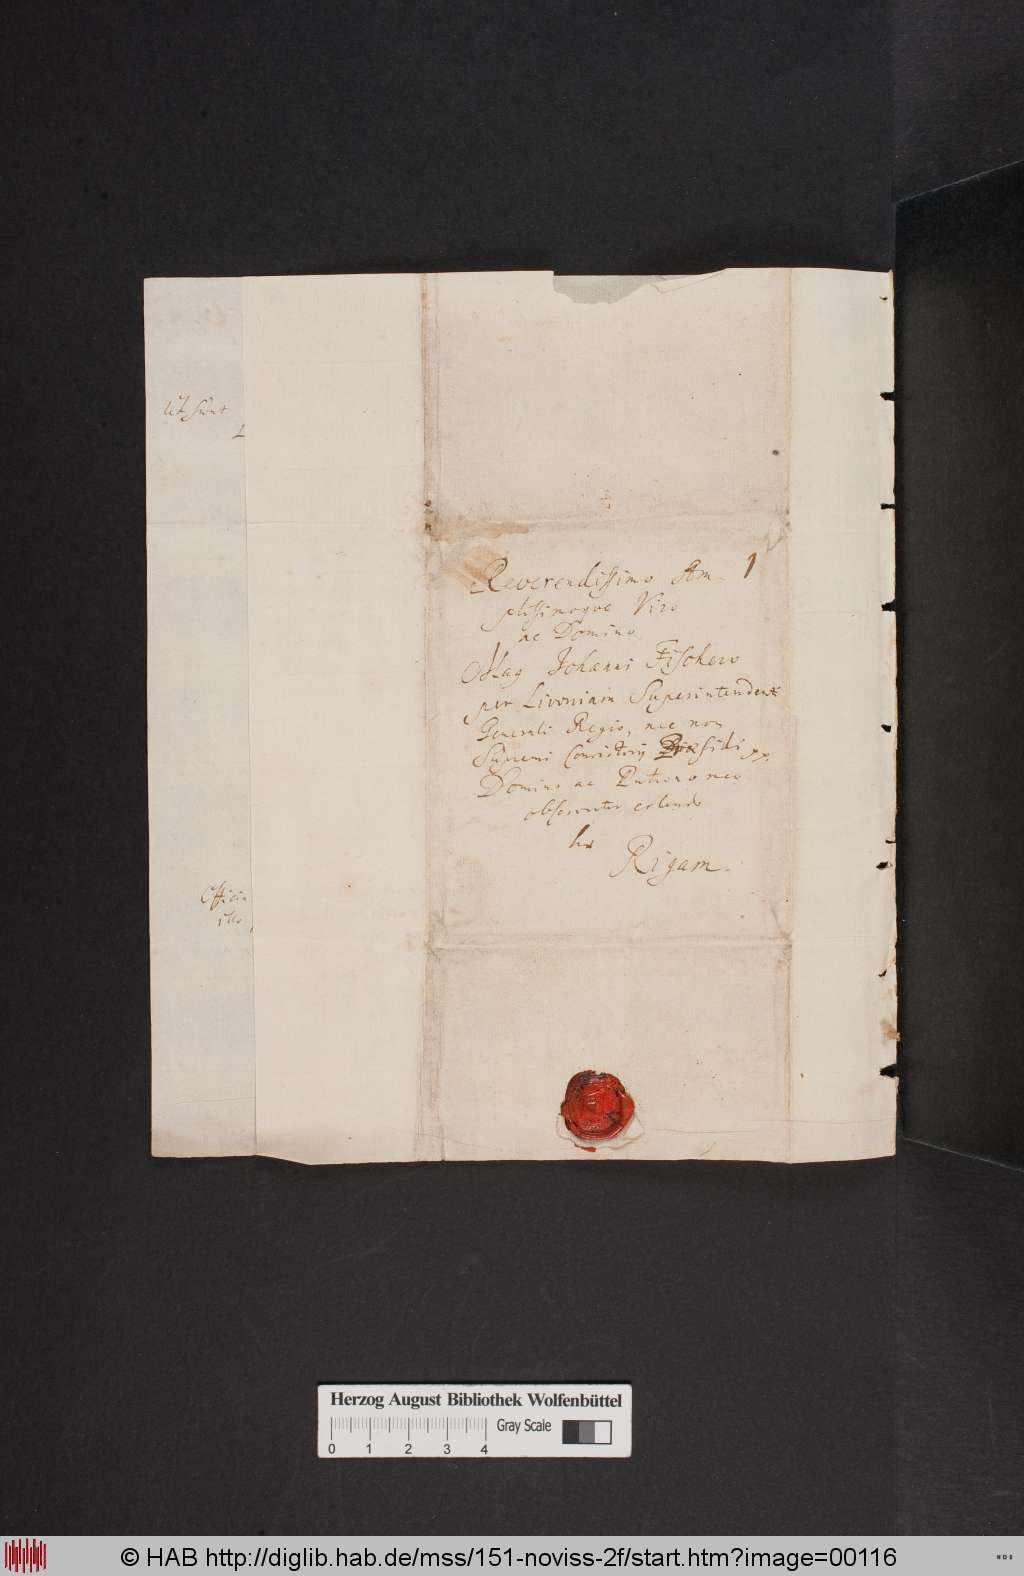 Ut sunt
Officii
illo
1
Reverendissimo Am-
plissimoque Viro
ac Domino
Mag Johanni Fischero
per Livoniam Superintendenti
Generali Regio, nec non
Supremi Consistorij Præsidi pp.
Domino ac Patrono meo
observanter colendo
Rigam.
Herzog August Bibliothek Wolfenbüttel
0 1 2 3 4 Gray Scale
© HAB http://diglib.hab.de/mss/151-noviss-2f/start.htm?image=00116